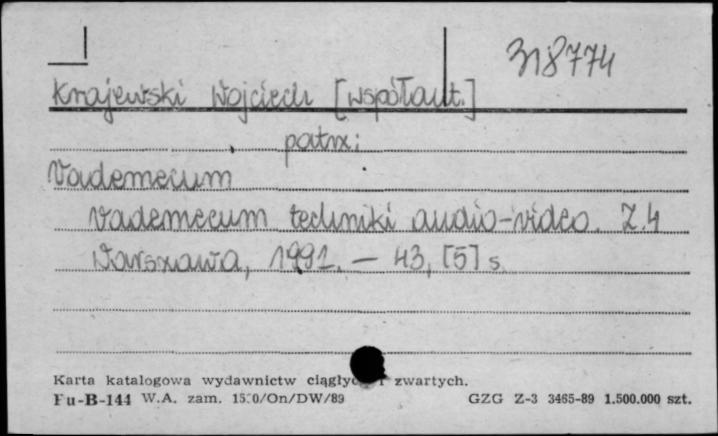 318774
Krajewski Wojciech [współaut.]
patrz:
Vademecum
Vademecum techniki audio-video. Z.4
Warszawa, 1991. — 43, [5] s.
Karta katalogowa wydawnictw i zwartych.
Fu-B-144 W.A. zam. /On/DW/89 GZG Z-3 3465-89 1.500.000 szt.